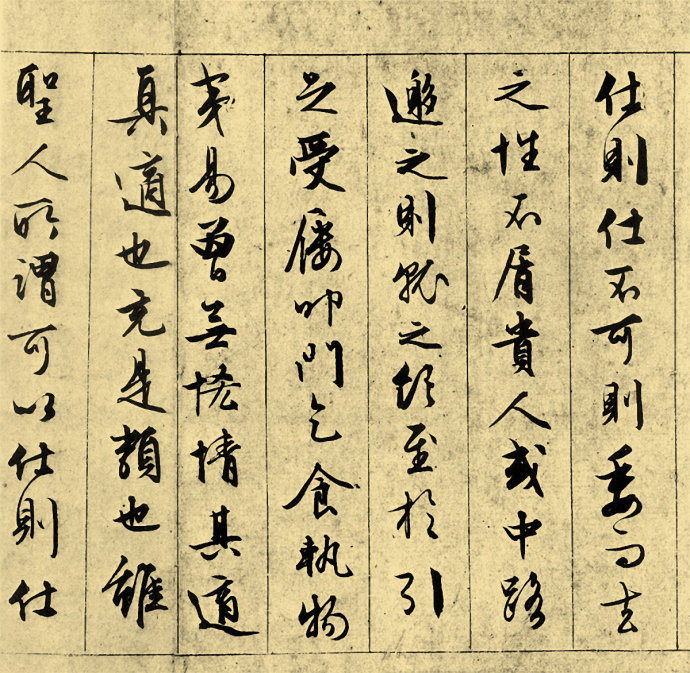 仕則仕不可則委而去
之性不屑貴人或中路
邀之則就之飲至於引
足受屨叩門乞食執物
夷易曾無恡情其適
真適也充是類也雖
聖人所謂可以仕則仕